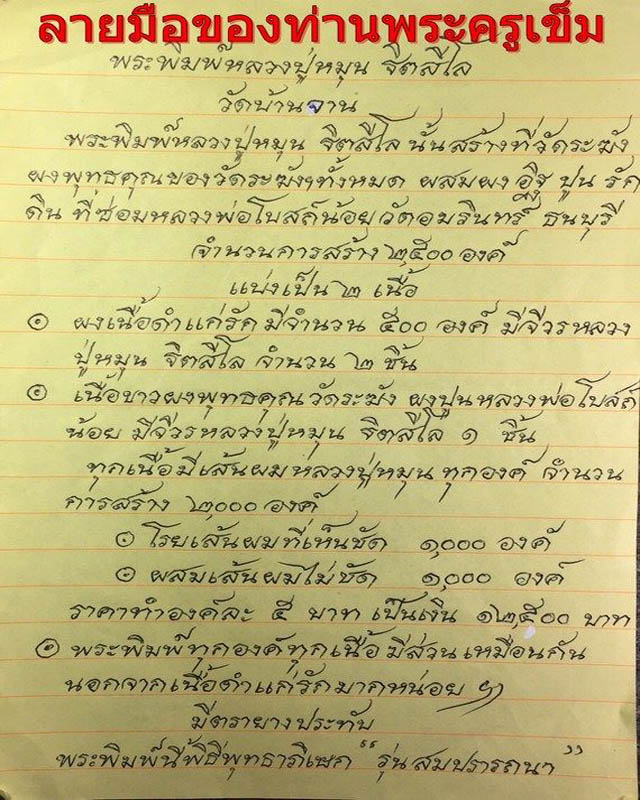 ลายมือของท่านพระครูเข็ม
พระพิมพ์หลวงปู่หมุน ฐิตสีโล
วัดบ้านจาน
พระพิมพ์หลวงปู่หมุน ฐิตสีโล นั้นสร้างที่วัดระฆัง
ผงพุทธคุณของวัดระฆังฯทั้งหมด ผสมผง อิฐ ปูน รัก
ดิน ที่ซ่อมหลวงพ่อโบสถ์น้อยวัดอมรินทร์ ธนบุรี
จำนวนการสร้าง ๒,๕๐๐ องค์
แบ่งเป็น ๒ เนื้อ
๏ ผงเนื้อดำแก่รัก มีจำนวน ๕๐๐ องค์ มีจีวรหลวง
ปู่หมุน ฐิตสีโล จำนวน ๒ ชิ้น
๏ เนื้อขาวผงพุทธคุณวัดระฆัง ผงปูนหลวงพ่อโบสถ์
น้อย มีจีวรหลวงปู่หมุน ฐิตสีโล ๑ ชิ้น
ทุกเนื้อมีเส้นผมหลวงปู่หมุน ทุกองค์ จำนวน
การสร้าง ๒,๐๐๐ องค์
๏ โรยเส้นผมที่เห็นชัด ๑,๐๐๐ องค์
๏ ผสมเส้นผมไม่ชัด ๑,๐๐๐ องค์
ราคาทำองค์ละ ๕ บาท เป็นเงิน ๑๒,๕๐๐ บาท
๏ พระพิมพ์ทุกองค์ทุกเนื้อ มีส่วนเหมือนกัน
นอกจากเนื้อดำแก่รักมากหน่อย
มีตรายางประทับ
พระพิมพ์นี้พิธีพุทธาภิเษก "รุ่นสมปรารถนา"